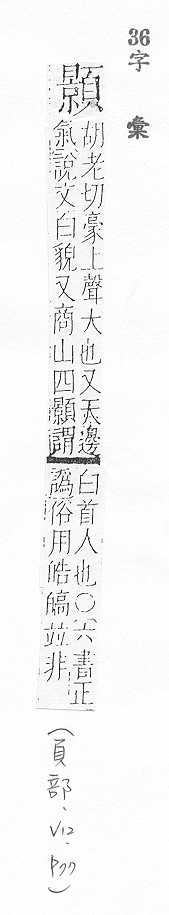 36字彙
顥
胡老切豪上聲大也又天邊
氣說文白貌又商山四顥謂
白首人也○六書正
譌俗用皓皜竝非
(頁部、V12、P77)